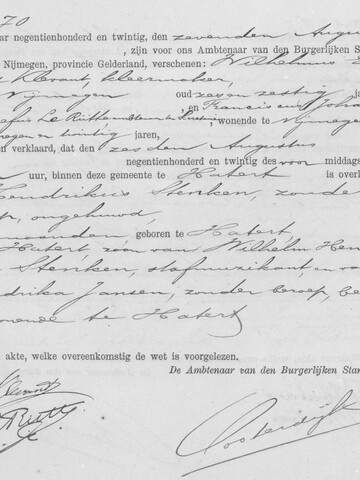 70
ar negentienhonderd en twintig, den zevenden Augus
, zijn voor ons Ambtenaar van den Burgerlijken St
Nijmegen, provincie Gelderland, verschenen: Wilhelmus
Klevant, kleermaker,
Nijmegen oud zes en zestig ja
, en Franciscus Joh
, wonende te Nijmege
en twintig jaren,
en verklaard, dat den zesden Augustus
negentienhonderd en twintig des voor middags
uur, binnen deze gemeente te Hatert is overl
Hendrikus Stenken, zonder
ongehuwd,
maanden, geboren te Hatert
Hatert, zoon van Wilhelm Hen
Stenken, stafmuzikant, en va
drika Jansen, zonder beroep, be
onende te Hatert
akte, welke overeenkomstig de wet is voorgelezen.
De Ambtenaar van den Burgerlijken Stan
Oosterdijk